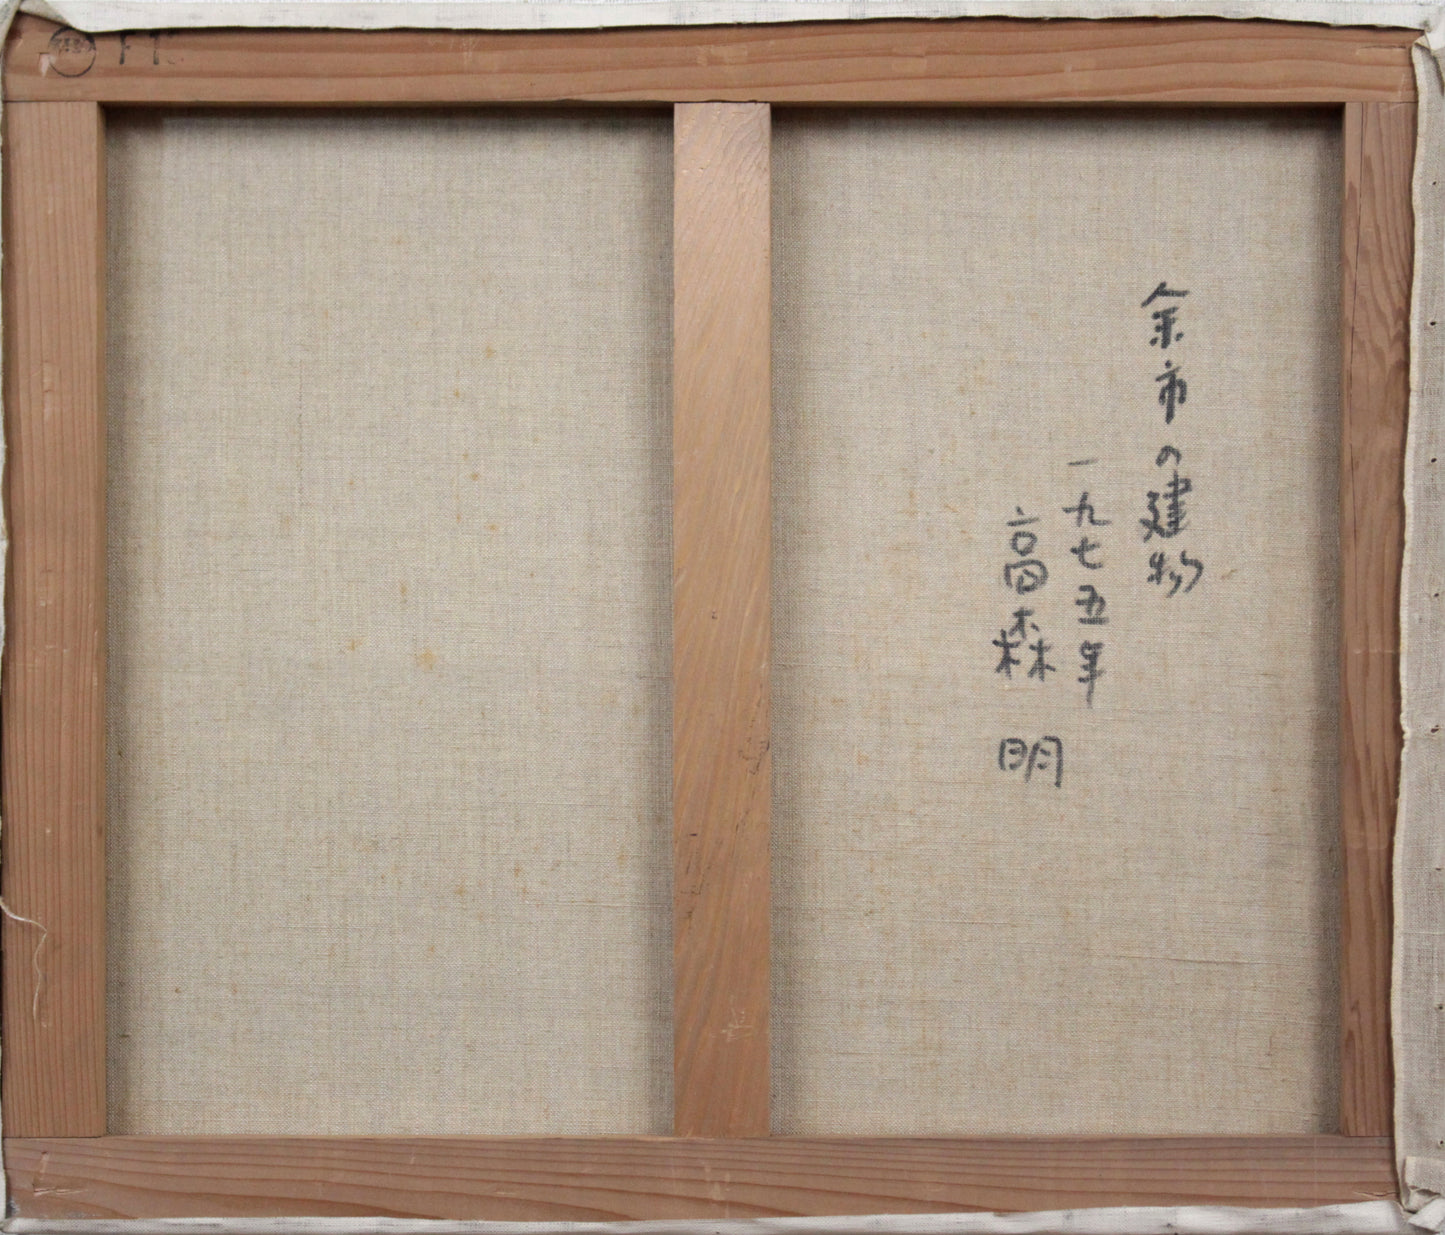 余市の建物
一九七五年
高森 明